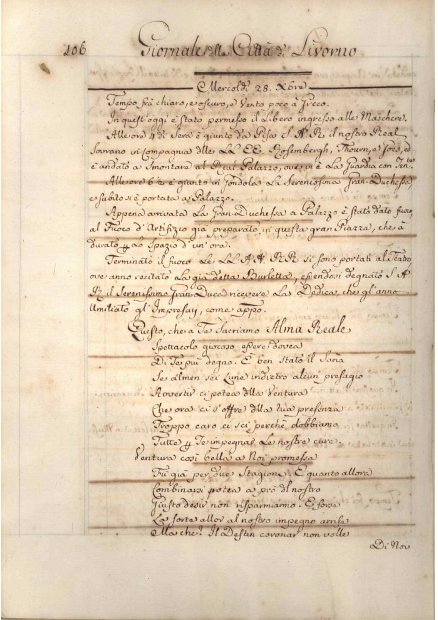 206 Giornale della Città di Livorno
Mercoldì 28. Xbre
Tempo frà chiaro, e oscuro, e Vento poco à
In quest'oggi è stato permesso il Libero ingresso alle Maschere.
Alle ore 4 di Sera è giunto da Pisa S. A. R. il nostro Real
Sovrano in compagnia delle LL. EE. Rosembergh, Thourn, e
è andato à Smontare al Real Palazzo, ove vi è La Guardia con
Alle ore 6 è giunta in Gondola La Serenissima Gran-Duchessa
e subito si è portata a Palazzo.
Appena arrivata La Gran-Duchessa a Palazzo è stato dato fuoco
al Fuoco d'Artifizio già preparato in questa gran Piazza, che à
durato p lo spazio d'un'ora.
Terminato il fuoco Le LL. AA. RR. si sono portati al Teatro
ove anno recitato La già detta Burletta, essendosi degnato S. A.
R. il Serenissimo Gran-Duca ricevere La Dedica, che gl'anno
umiliato gl'Impresarj, come appo.
Questo, che a Te Sacriamo Alma Reale
Spettacolo giocoso esser dovea
Di Te più degno. E ben stato il Saria
Se almen sei Lune indietro alcun presagio
Avvertir ci potea della Ventura
Che ora ci s'offre della tua presenza
Troppo caro ci sei perchè dobbiamo
Tutte p Te impegnar Le nostre cure
Ventura così bella a Noi promessa
Fù già per due Stagioni. E quanto allora
Combinarsi potea a prò del nostro
Giusto desir non risparmiamo. E forse
La sorte allor al nostro impegno arrise
Ma che? Il Destin coronar non volle
Di Noi